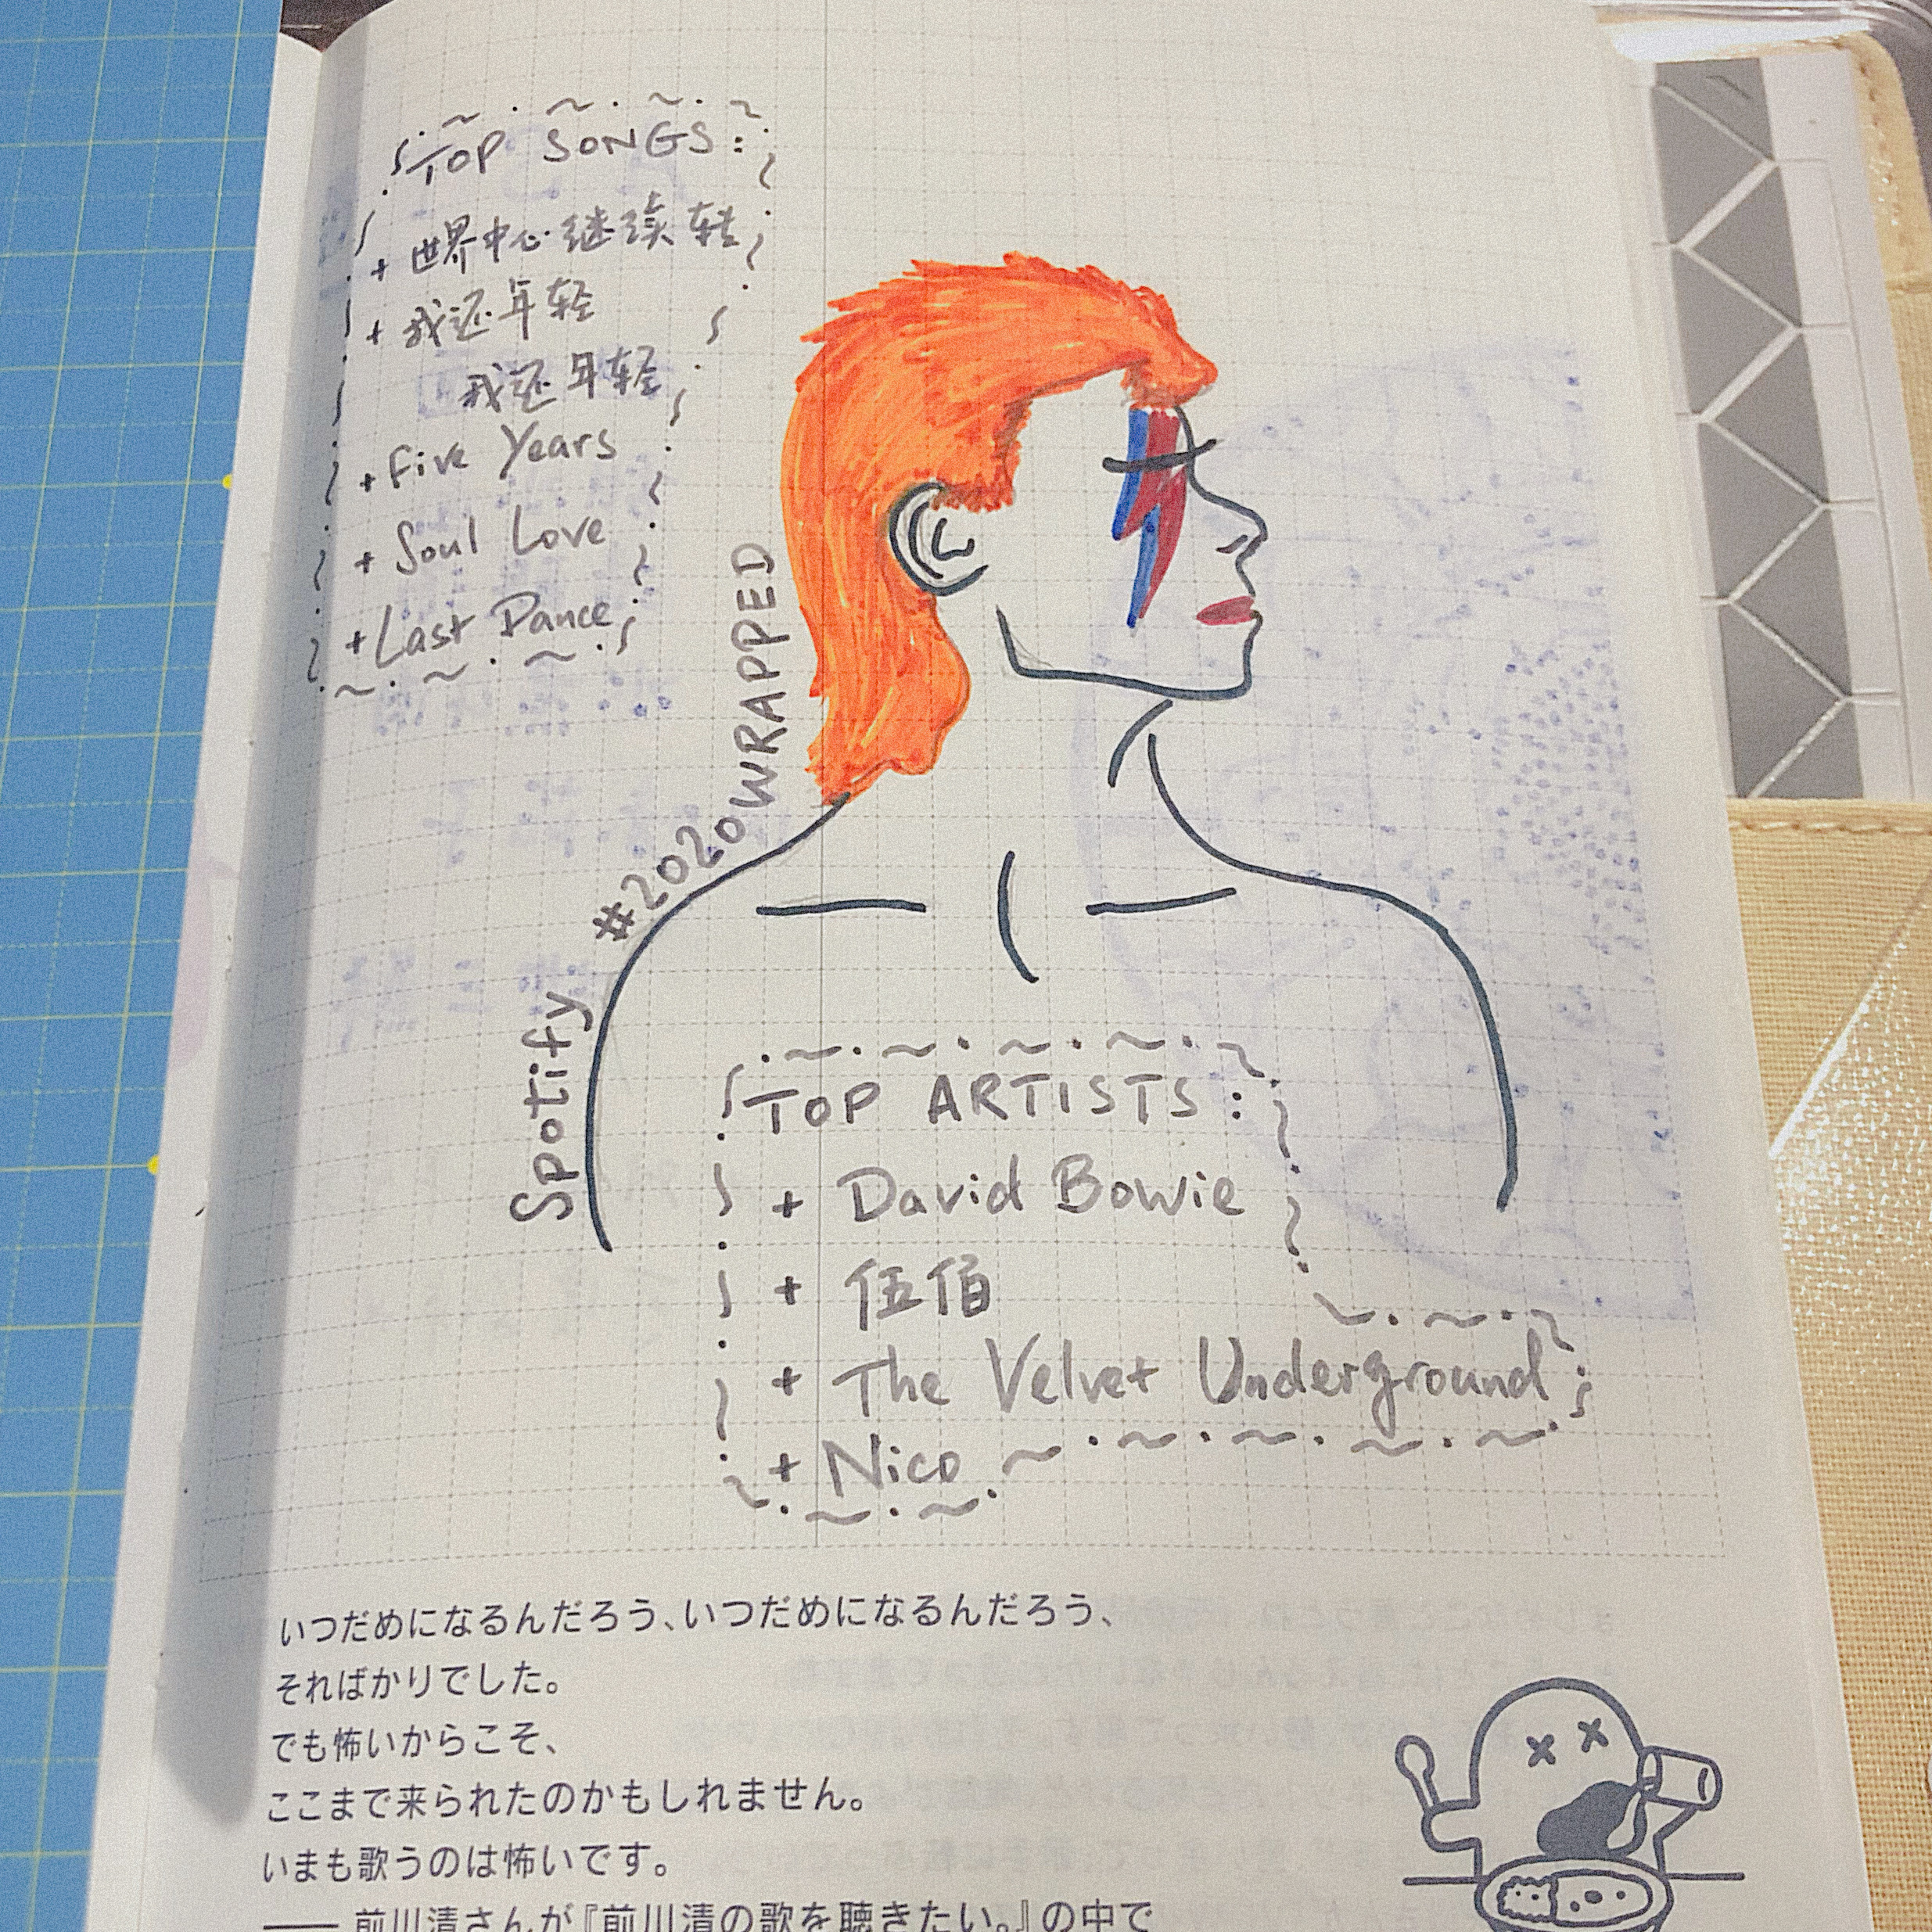 TOP SONGS:
+ 世界中心继续转
+ 我还年轻
我还年轻
+ Five Years
+ Soul Love
+ Last Dance
Spotify #2020WRAPPED
TOP ARTISTS:
+ David Bowie
+ 伍佰
+ The Velvet Underground
+ Nico
いつだめになるんだろう、いつだめになるんだろう、
そればかりでした。
でも怖いからこそ、
ここまで来られたのかもしれません。
いまも歌うのは怖いです。
—— 前川清さんが『前川清の歌を聴きたい。』の中で